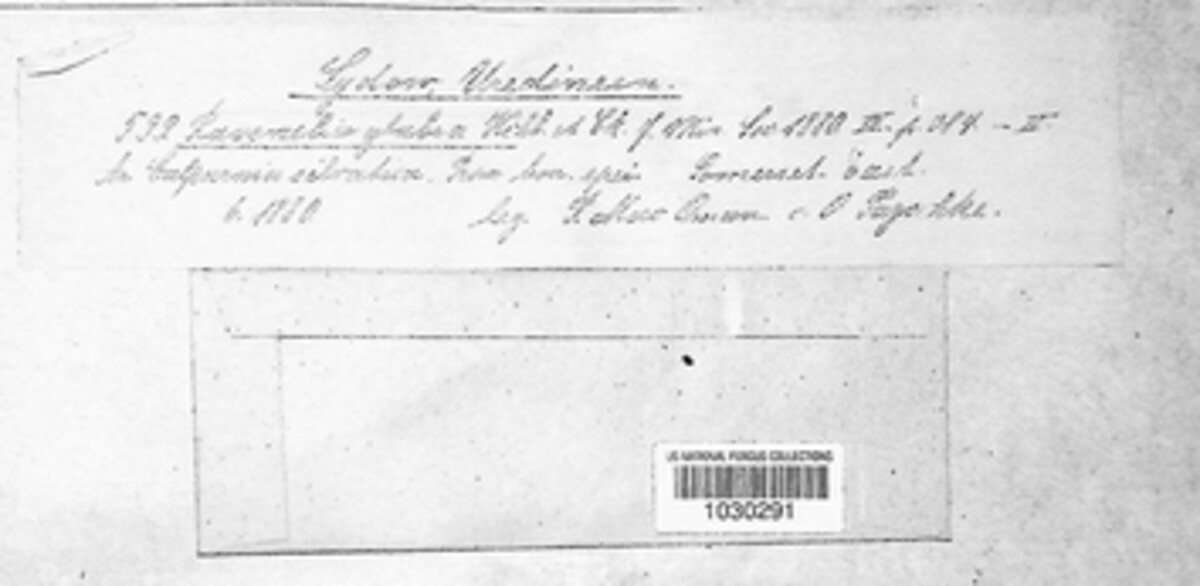 Sydow, Uredineen.
532 Ravenelia glabra Klkb. et Ck. f. Mic. Soc 1880 III. p. 384. - II
In Calpurnia silvatica. Somerset. East.
6. 1880 leg. Mac Owan c. O Pazschke.
US NATIONAL FUNGUS COLLECTIONS
1030291